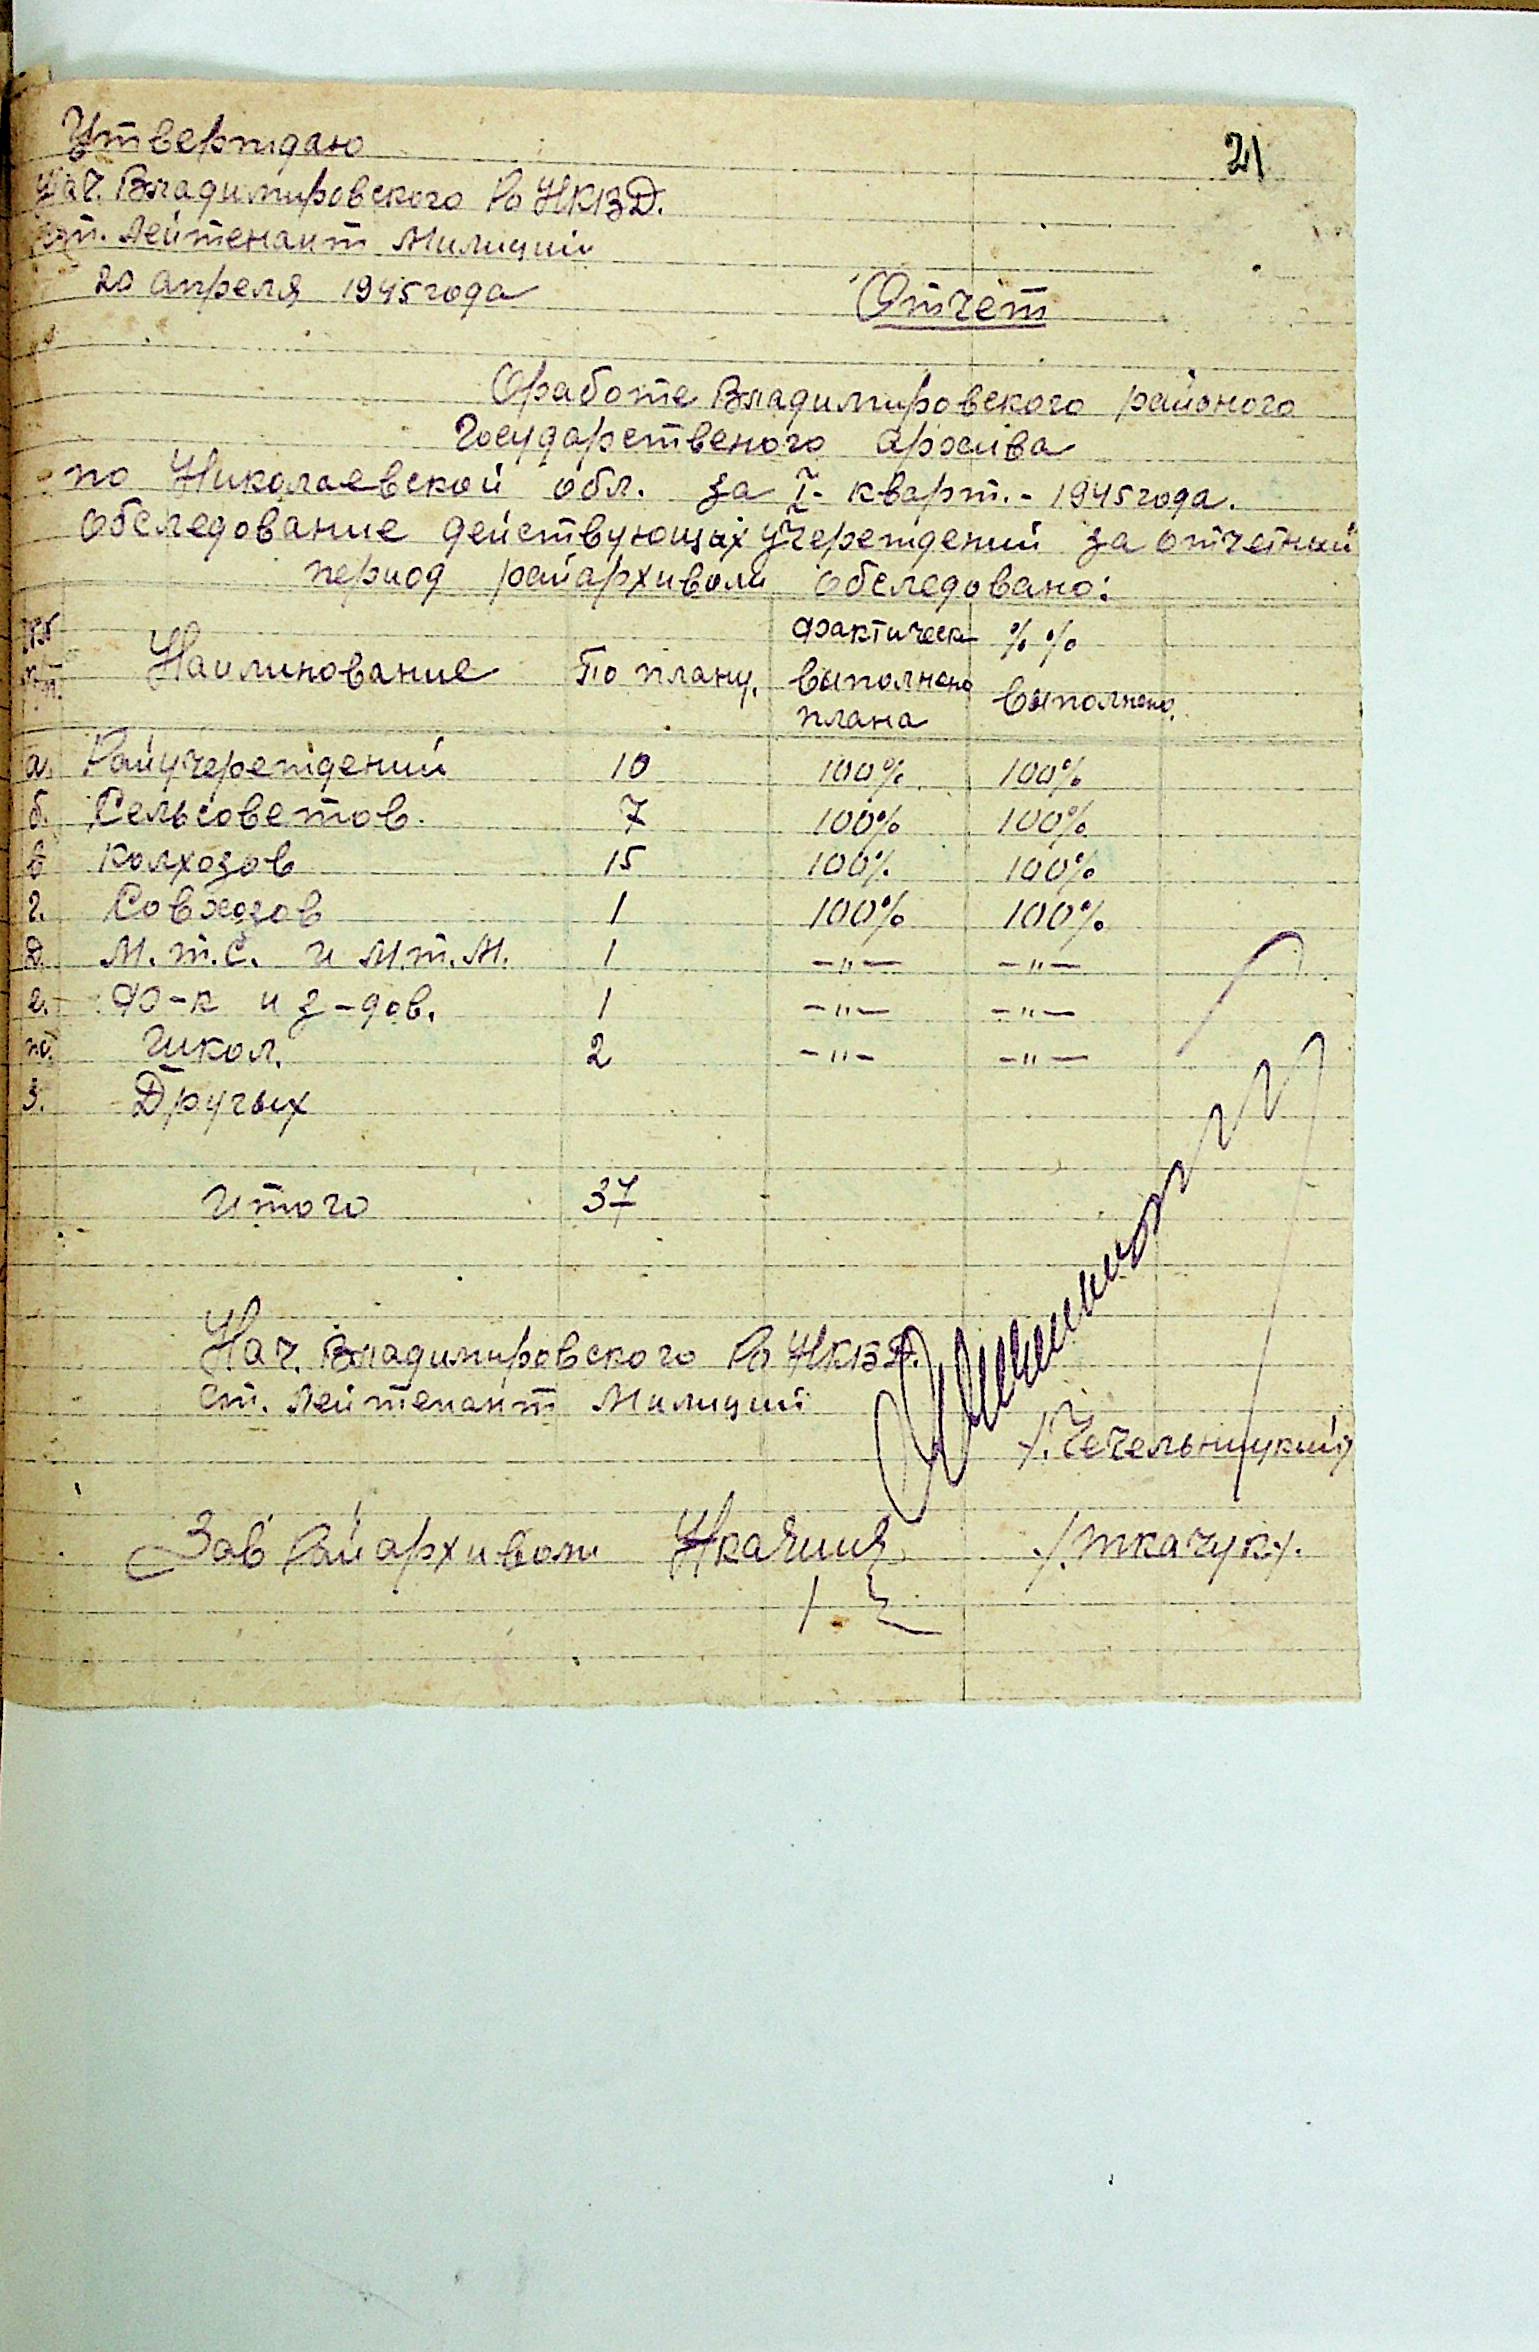 21
Утверждаю
Нач. Владимировского Ро НКВД.
ст. Лейтенант Милиции
20 апреля 1945 года
Отчет
О работе Владимировского районого
Государственого архива
по Николаевской обл. за I - кварт. - 1945 года.
Обследование действующих учереждений за отчетный
период райархивом обследовано:
№№ п/п. Наиминование По плану. фактическ выполнено плана %% выполнено.
а. Райучереждений 10 100% 100%
б. Сельсоветов. 7 100% 100%
в Колхозов 15 100% 100%
г. Совхозов 1 100% 100%
д. М.т.С. и М.т.М. 1 -"- -"-
е. Ф-к и з-дов. 1 -"- -"-
ж. Школ. 2 -"- -"-
з. Других
Итого 37
Нач. Владимировского Ро НКВД.
ст. Лейтенант Милиции
/.Чечельницкий/
Зав Райархивом /.Ткачук/.